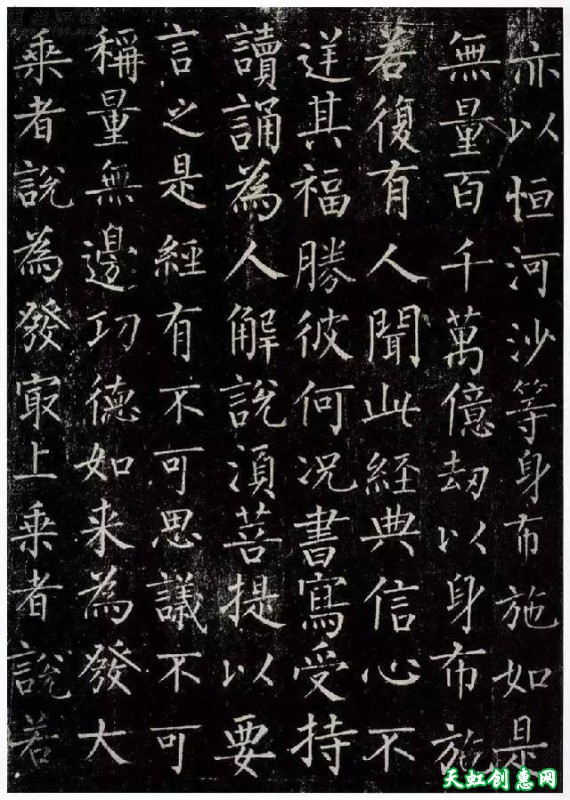 亦以恒河沙等身布施如是
無量百千萬億劫以身布施
若復有人聞此經典信心不
逆其福勝彼何况書寫受持
讀誦為人解說須菩提以要
言之是經有不可思議不可
稱量無邊功德如来為發大
乘者說為發冣上乘者說若
天虹创惠网